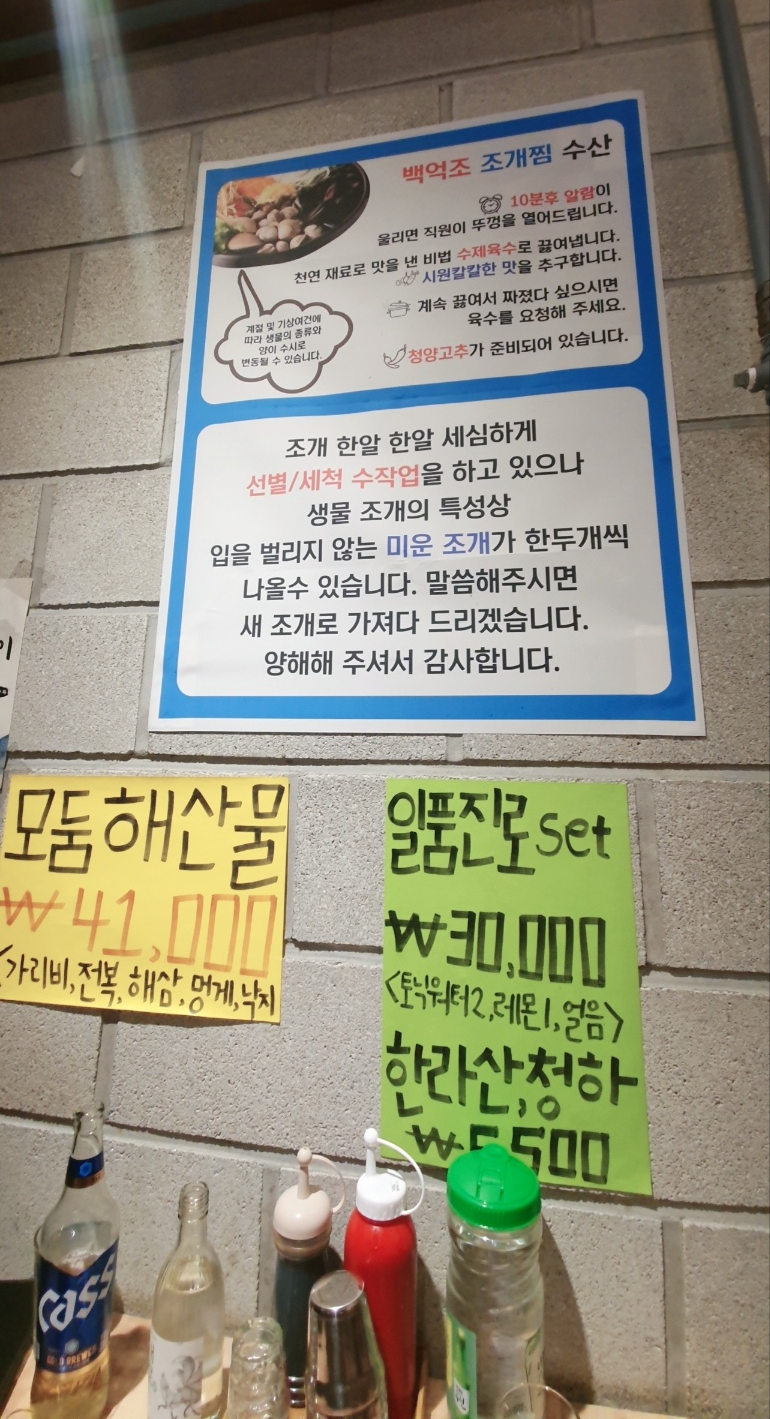 백억조 조개찜 수산
10분후 알람이
울리면 직원이 뚜껑을 열어드립니다.
천연 재료로 맛을 낸 비법 수제육수로 끓여냅니다.
시원칼칼한 맛을 추구합니다.
계속 끓여서 짜졌다 싶으시면
육수를 요청해 주세요.
청양고추가 준비되어 있습니다.
계절 및 기상여건에
따라 생물의 종류와
양이 수시로
변동될 수 있습니다.
조개 한알 한알 세심하게
선별/세척 수작업을 하고 있으나
생물 조개의 특성상
입을 벌리지 않는 미운 조개가 한두개씩
나올수 있습니다. 말씀해주시면
새 조개로 가져다 드리겠습니다.
양해해 주셔서 감사합니다.
모둠해산물
₩41,000
<가리비,전복,해삼,멍게,낙지
일품진로 set
₩30,000
<토닉워터2,레몬1,얼음>
한라산,청하
₩5,500
Cass